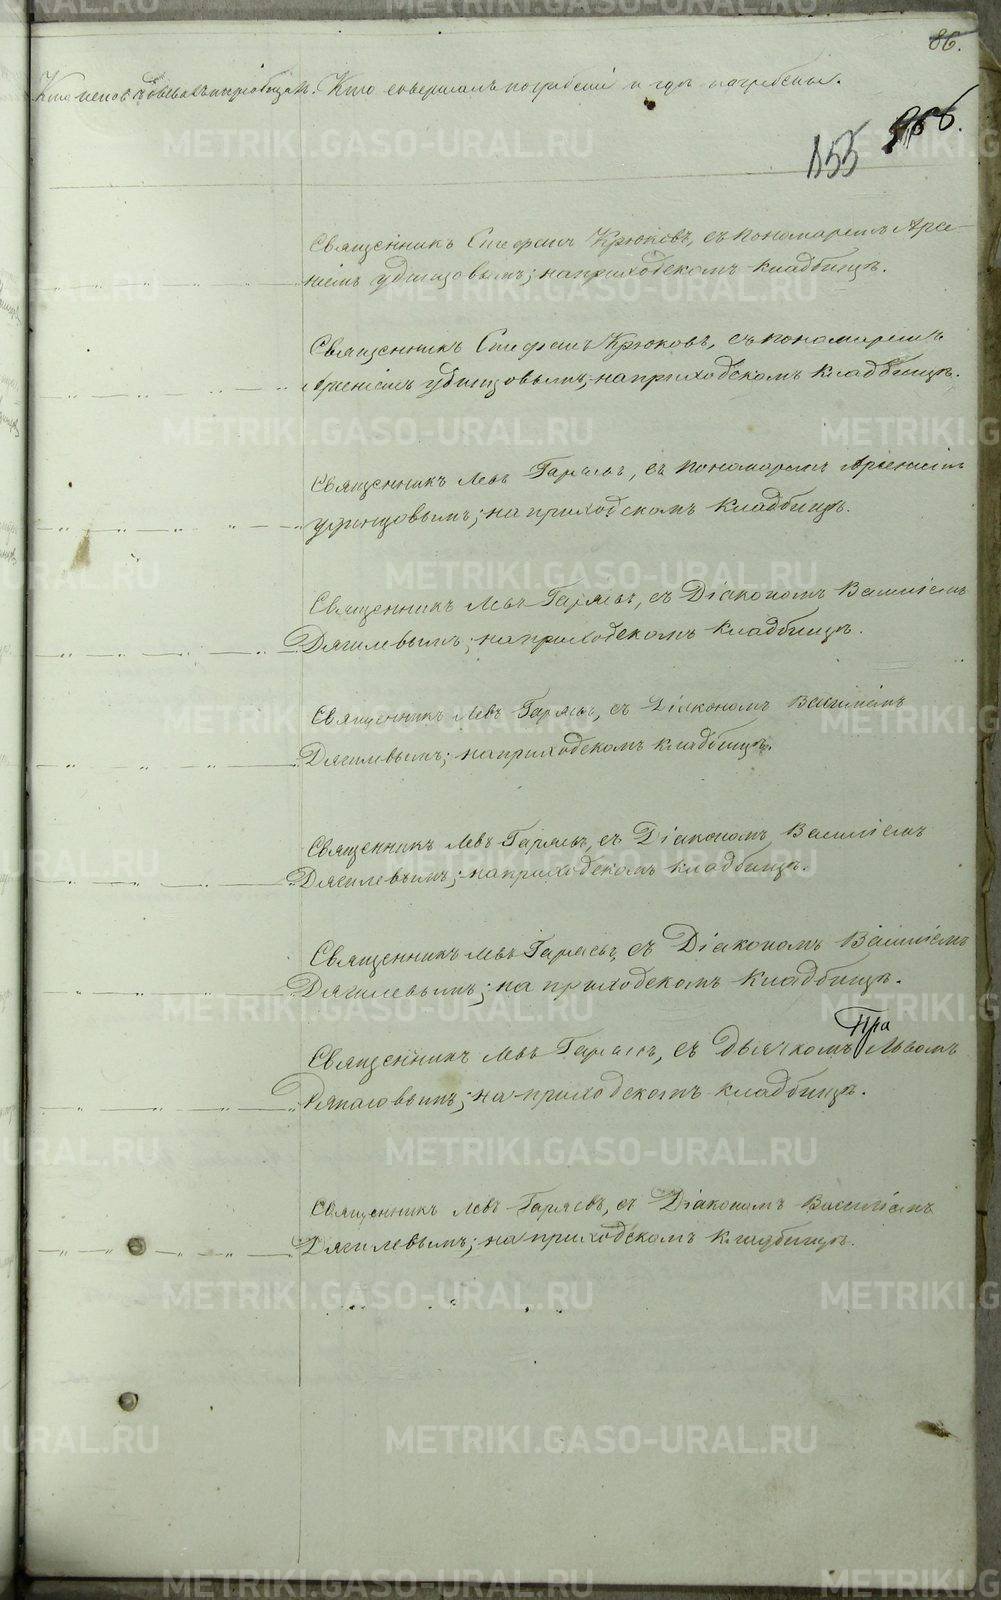 86.
Кто исповѣдывалъ и пріобщалъ. Кто совершалъ погребеніе и гдѣ погребены.
155
Священникъ Стефанъ Крюковъ, съ пономаремъ Арсе-
ніемъ Удинцовымъ; на приходскомъ кладбищѣ.
Священникъ Стефанъ Крюковъ, съ пономаремъ
Арсеніемъ Удинцовымъ; на приходскомъ кладбищѣ.
Священникъ Левъ Гаряевъ, съ пономаремъ Арсеніемъ
Удинцовымъ; на приходскомъ кладбищѣ.
Священникъ Левъ Гаряевъ, съ Діакономъ Василіемъ
Дягилевымъ; на приходскомъ кладбищѣ.
Священникъ Левъ Гаряевъ, съ Діакономъ Василіемъ
Дягилевымъ; на приходскомъ кладбищѣ.
Священникъ Левъ Гаряевъ, съ Діакономъ Василіемъ
Дягилевымъ; на приходскомъ кладбищѣ.
Священникъ Левъ Гаряевъ, съ Діакономъ Василіемъ
Дягилевымъ; на приходскомъ кладбищѣ.
Священникъ Левъ Гаряевъ, съ Дьячкомъ Львомъ
на приходскомъ кладбищѣ.
Священникъ Левъ Гаряевъ, съ Діакономъ Василіемъ
Дягилевымъ; на приходскомъ кладбищѣ.
METRIKI.GASO-URAL.RU